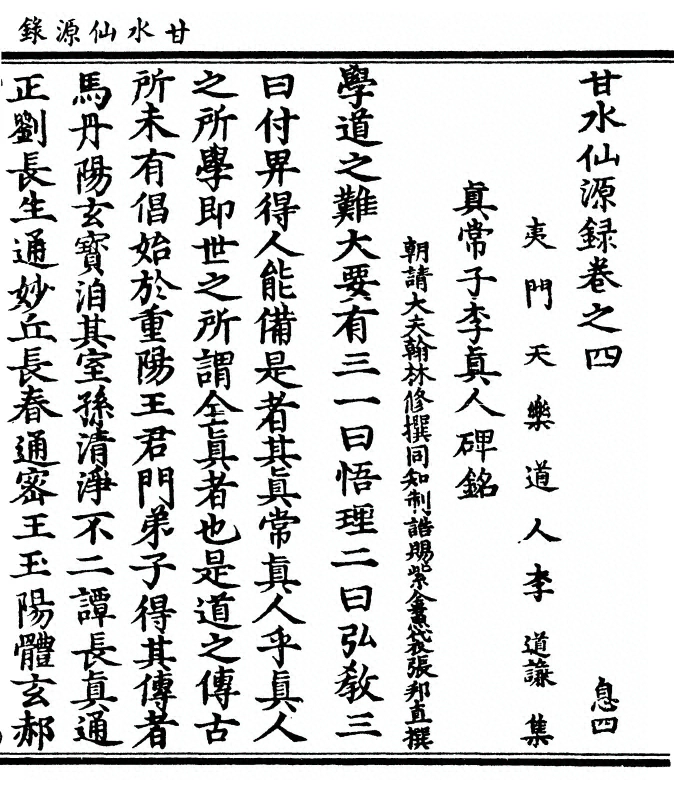 甘水仙源錄
甘水仙源録卷之四 息四
夷門天樂道人李道謙集
眞常子李眞人碑銘
朝請大夫翰林修撰同知制誥賜紫金魚袋張邦直撰
學道之難大要有三一曰悟理二曰弘敎三
曰付畀得人能備是者其眞常眞人乎眞人
之所學即世之所謂全眞者也是道之傳古
所未有倡始於重陽王君門弟子得其傳者
馬丹陽玄寶洎其室孫清淨不二譚長眞通
正劉長生通妙丘長春通密王玉陽體玄郝